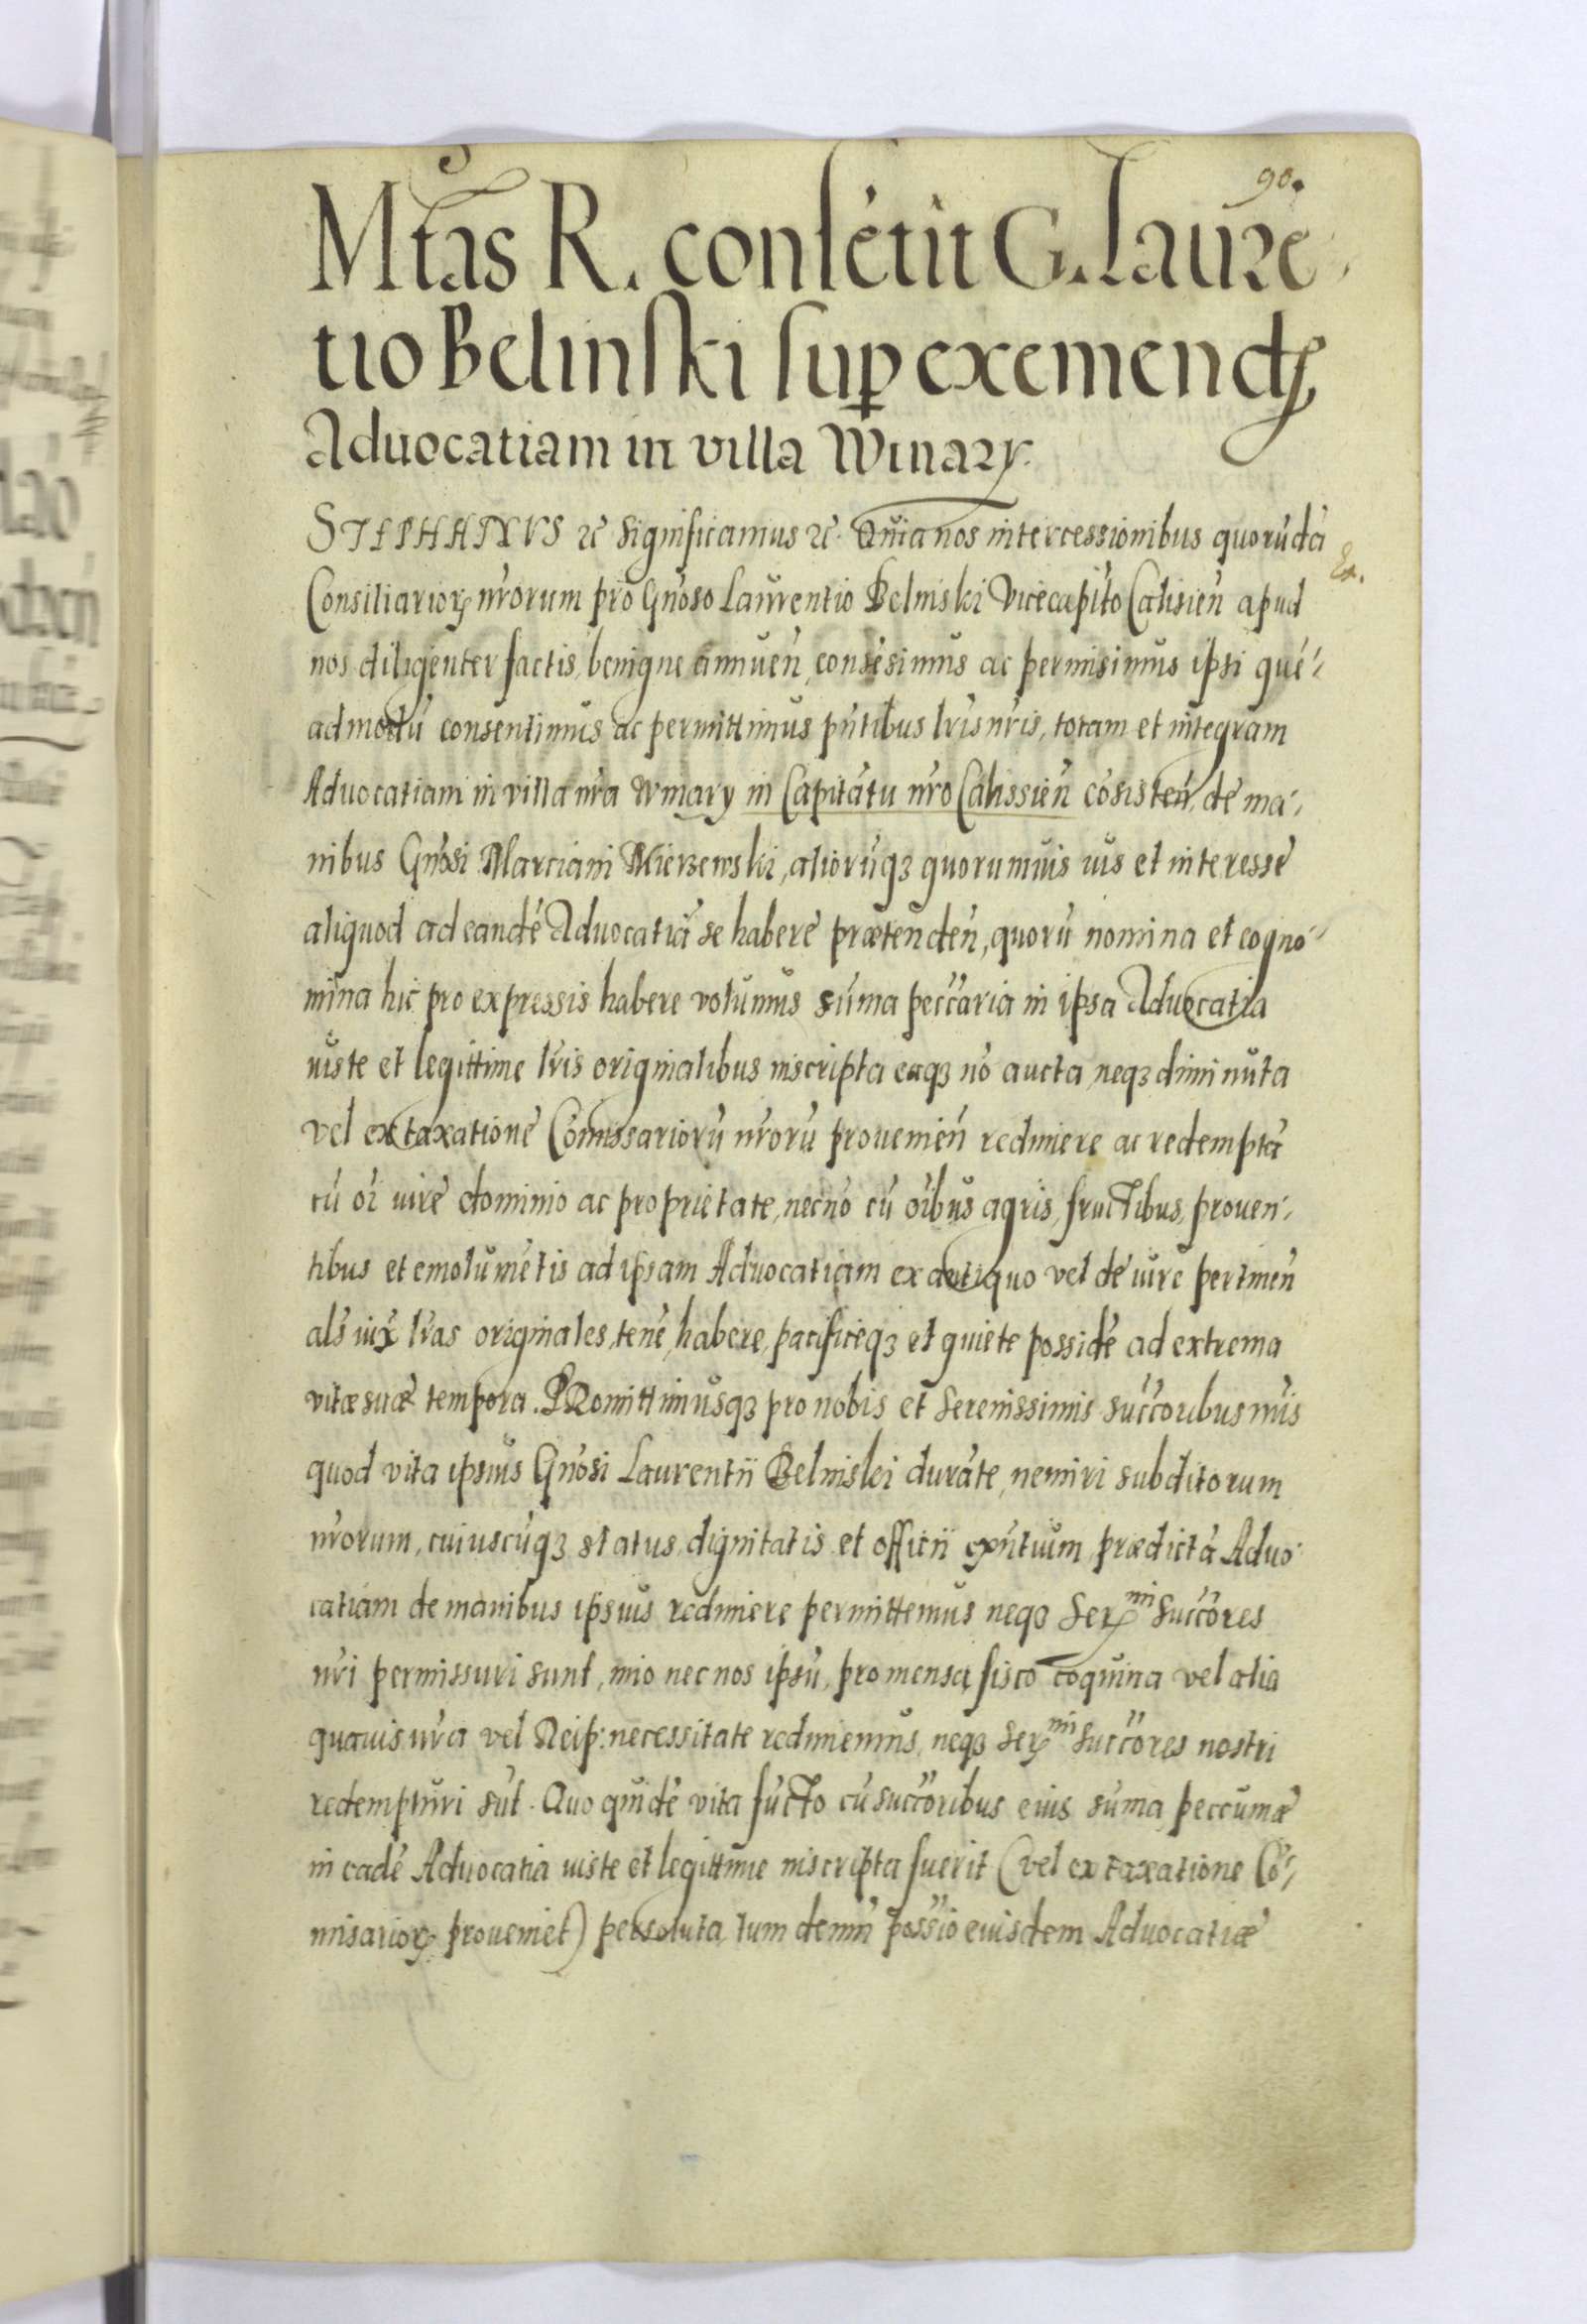 90.
Mtas R. consẽtit G. Laurẽ
tio Belinski sup exemendã
Aduocatiam in villa Winary.
STEPHANVS &c significamus &c. Quia nos intercessionibus quorũdã
Ex.
Consiliarior nrorum pro Gnoso Laurentio Belinski Vicecapito Calisien apud
nos diligenter factis, benigne annuen, consẽsimus ac permisimus ipsi quẽ-
admodũ consentimus ac permittimus pntibus lris nris, totam et integram
Aduocatiam in villa nra Winary in Capitatu nro Calissien cõsisten, de mã-
nibus Gnosi Marciani Mierzewski, aliorũq3 quorumuis ius et interesse
aliquod ad eandẽ Aduocatiã se habere prætenden, quorũ nomina et cogno-
mina hic pro expressis habere volumus sũma peccaria in ipsa Aduocatia
iuste et legittime lris originalibus inscripta eaq3 nõ aucta neq3 diminuta
vel ex taxatione Cõmissariorũ nrorũ prouenien redimere ac redemptã
cũ oi iure dominio ac proprietate, necnõ cũ oibus agris, fructibus, prouen-
tibus et emolumẽtis ad ipsam Aduocatiam ex antiquo vel de iure pertinen
als iux lras originales, tenẽ, habere, pacificeq3 et quiete possidẽ ad extrema
vitæ suæ tempora. PRomittimusq3 pro nobis et Serenissimis succoribus nris
quod vita ipsius Gnosi Laurentii Belinski durãte, nemini subditorum
nrorum, cuiuscũq3 status dignitatis et officii exntium, prædictã Aduo-
catiam de manibus ipsius redimere permittemus neq3 Sermi Succores
nri permissuri sunt, imo nec nos ipsũ, pro mensa fisco coquina vel alia
quauis nra vel Reip: necessitate redimemus, neq3 Sermi succores nostri
redempturi sũt. Quo quidẽ vita fũcto cũ succoribus eius sũma peccuniæ
in eadẽ Aduocatia iuste et legittime inscripta fuerit (vel ex taxatione Cõ-
misarior proueniet) persoluta, tum demũ possio eiusdem Aduocatiæ